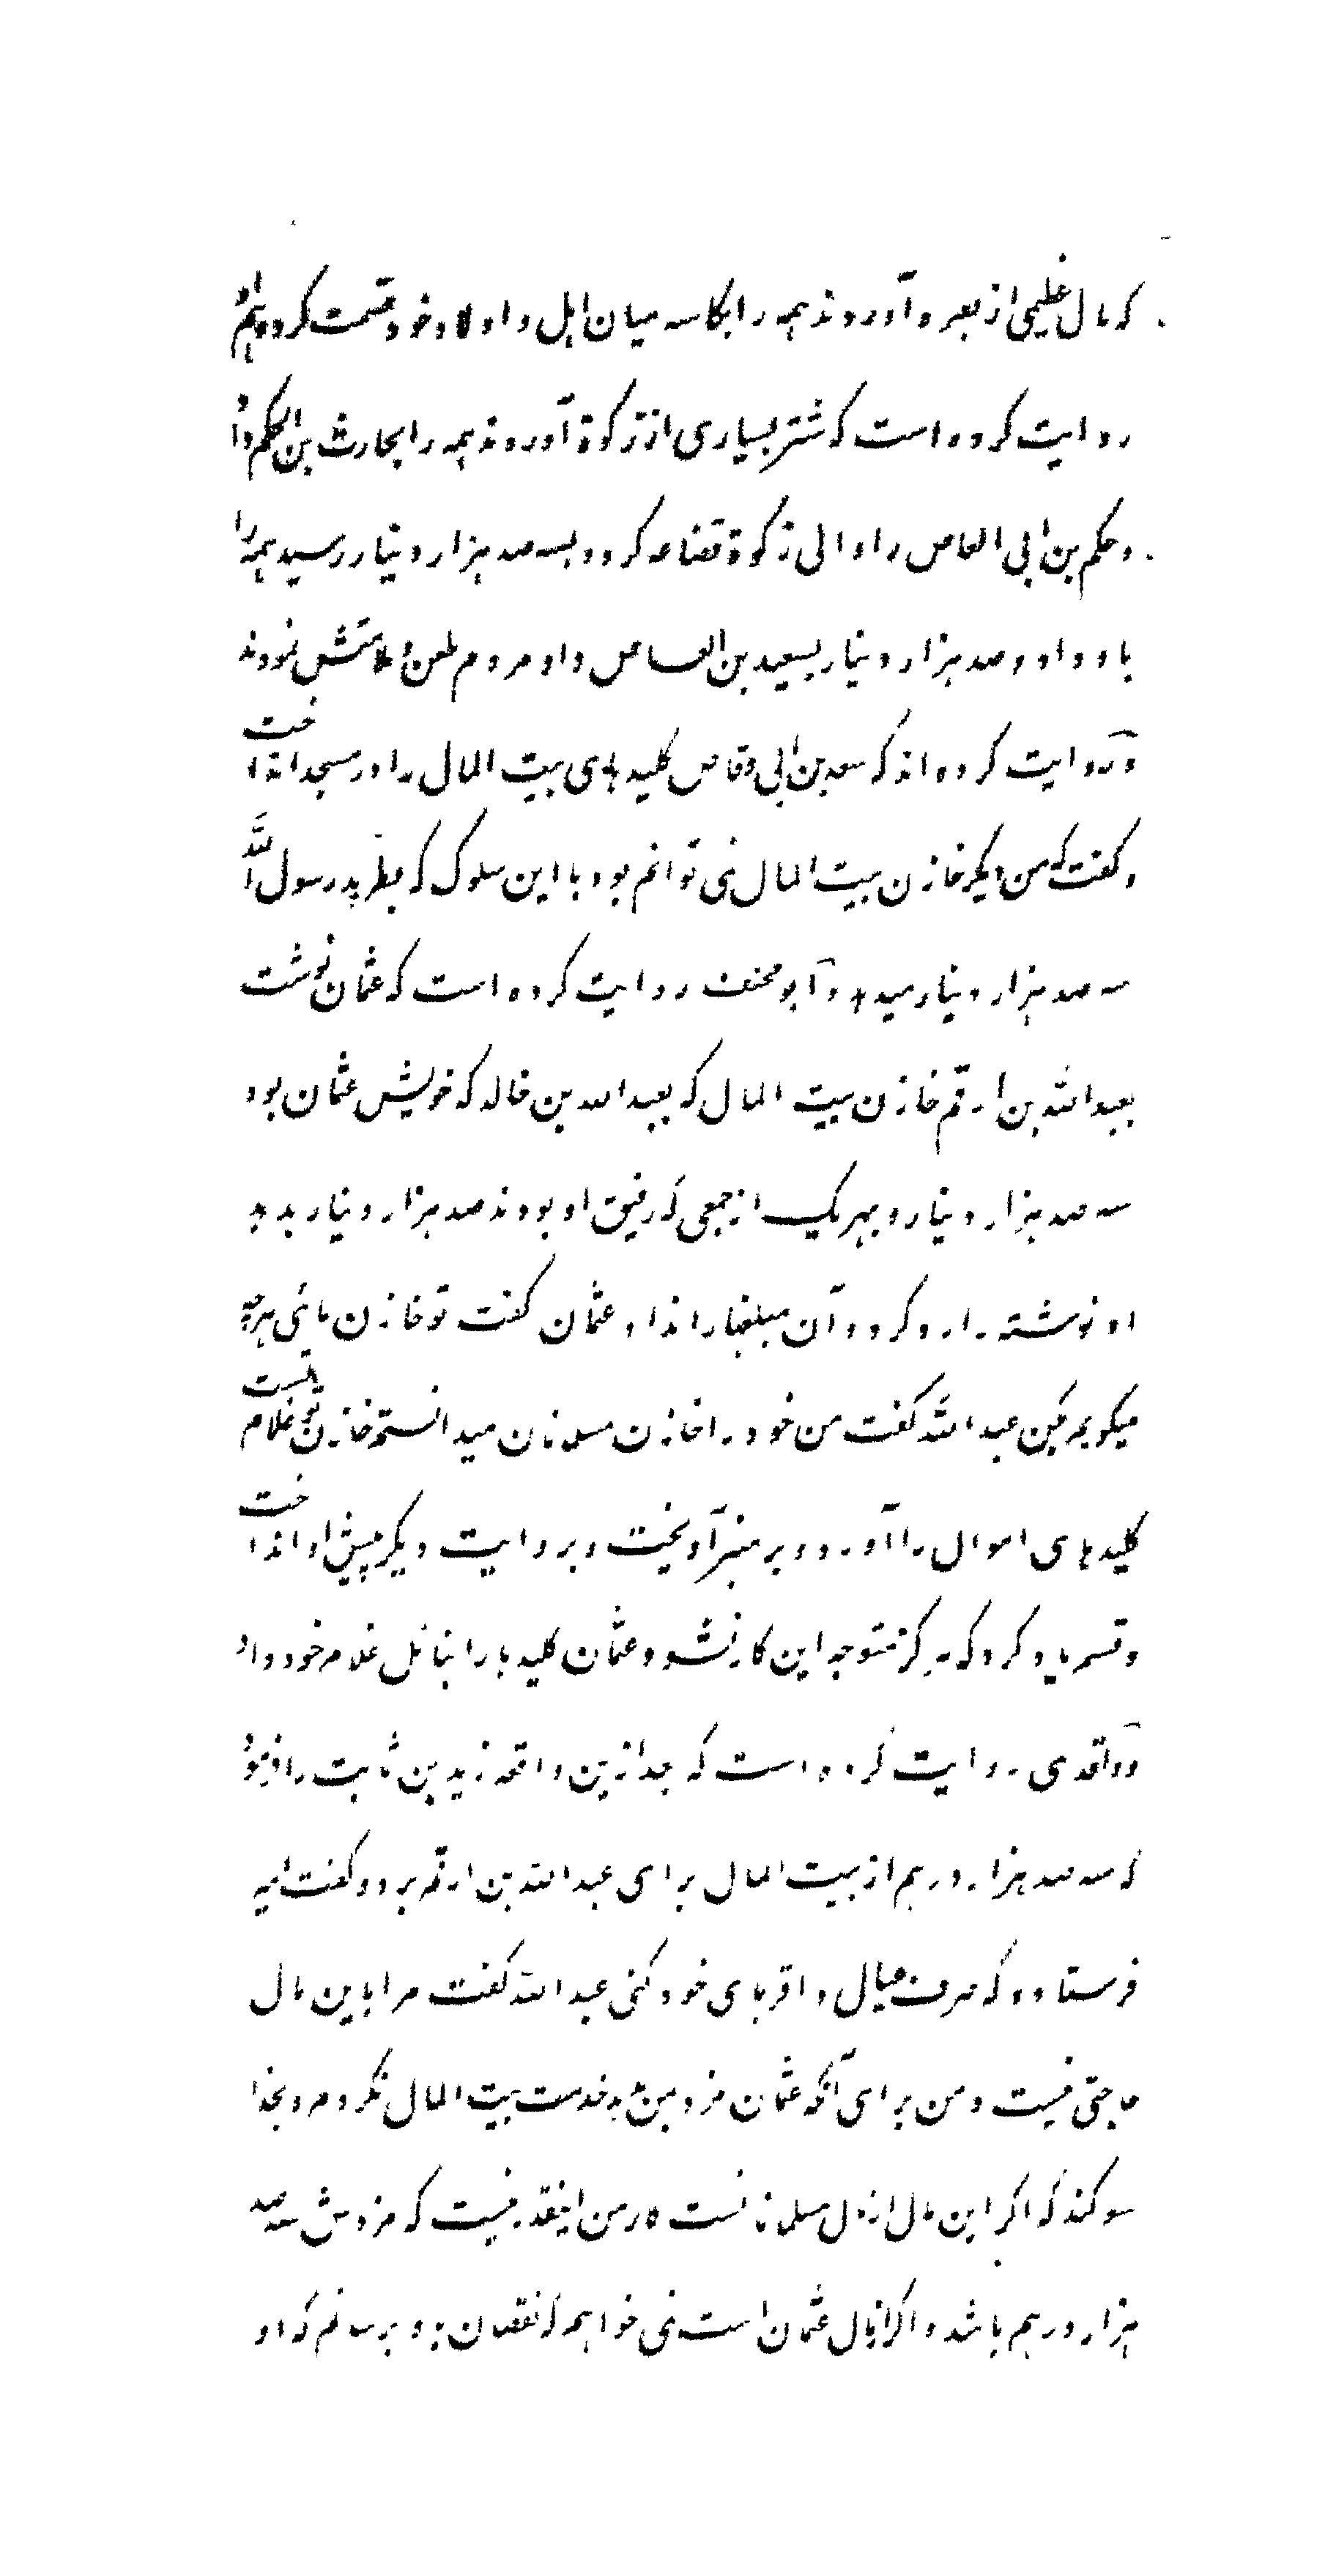 که مال عظیمی از بصره آوردند همه را بکاسه میان اهل و اولاد خود قسمت کرد و هم او
روایت کرده است که شتر بسیاری از زکوة آوردند همه را بحارث بن الحکم داد
و حکم بن ابی العاص را والی زکوة قضاعه کرد و بسه صد هزار دینار رسید همه را
باو داد و صد هزار دینار بسعید بن العاص داد و مردم طعن و ملامتش نمودند
و روایت کرده اند که سعد بن ابی وقاص کلیدهای بیت المال را در مسجد انداخت
و کفت که من دیکر خازن بیت المال نمی توانم بود با این سلوک که بطرید رسول الله
سه صد هزار دینار میدهد و ابو مخنف روایت کرده است که عثمان نوشت
بعبد الله بن ارقم خازن بیت المال که بعبد الله بن خالد که خویش عثمان بود
سه صد هزار دینار و بهر یک از جمعی که رفیق او بودند صد هزار دینار بدهد
او نوشته را رد کرد و آن مبلغها را نداد عثمان کفت تو خازن مائی هر چه
میکویم بکن عبد الله کفت من خود را خازن مسلمانان میدانستم خازن تو غلام تست
کلیدهای اموال را آورد و بر منبر آویخت و بروایت دیکر پیش او انداخت
و قسم یاد کرد که هرکز متوجه این کار نشود و عثمان کلیدها را بناتل غلام خود داد
و واقدی روایت کرده است که بعد ازین واقعه زید بن ثابت را فرمود
که سه صد هزار درهم از بیت المال برای عبد الله بن ارقم برد و کفت امیر
فرستاده که صرف عیال و اقربای خود کنی عبد الله کفت مرا باین مال
حاجتی نیست و من برای آنکه عثمان مزد بمن بدهد خدمت بیت المال نکردم و بخدا
سوکند که اکر این مال از مال مسلمانانست کار من اینقدر نیست که مزدش سه صد
هزار درهم باشد و اکر از مال عثمان است نمی خواهم که نقصان بدو برسانم که او